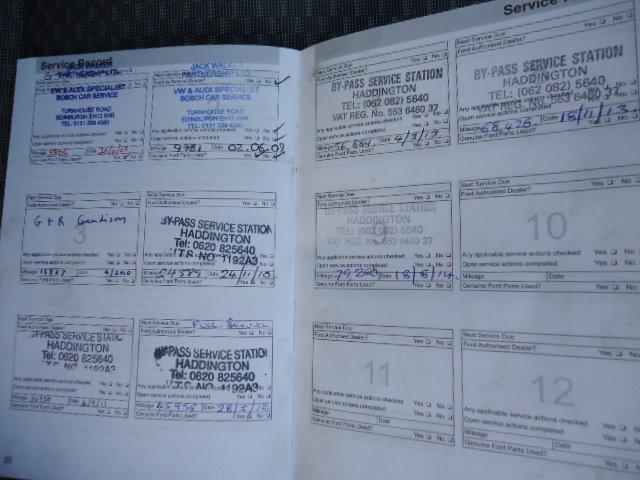 Service Record
JACK WALKER
PARTNERSHIP LTD.
VW & AUDI SPECIALIST
BOSCH CAR SERVICE
TURNHOUSE ROAD
EDINBURGH EH12
Any applicable service actions checked Yes No
Open service actions completed Yes No
Mileage Date
Genuine Ford Parts Used? Yes No
JACK WALKER
PARTNERSHIP LTD.
Ford Authorised Dealer? Yes No
VW & AUDI SPECIALIST
BOSCH CAR SERVICE
TURNHOUSE ROAD
EDINBURGH EH12
Any applicable service actions checked Yes No
Open service actions completed Yes No
Mileage 9781 Date 02.06.09
Genuine Ford Parts Used? Yes No
Next Service Due
Ford Authorised Dealer? Yes No
3
G + R
Any applicable service actions checked Yes No
Open service actions completed Yes No
Mileage Date
Genuine Ford Parts Used? Yes No
Next Service Due
Ford Authorised Dealer? Yes No
BY-PASS SERVICE STATION
HADDINGTON
Tel: 0620 825640
Mileage Date 24/11/10
Genuine Ford Parts Used? Yes No
Next Service Due
Ford Authorised Dealer? Yes No
HADDINGTON
Tel: 0620 825640
Any applicable service actions checked Yes No
Open service actions completed Yes No
Mileage Date
Genuine Ford Parts Used? Yes No
Next Service Due Full Service
Ford Authorised Dealer? Yes No
BY-PASS SERVICE STATION
HADDINGTON
Tel: 0620 825640
Open service actions completed Yes No
Mileage 45956 Date 28/5/12
Genuine Ford Parts Used? Yes No
26
Service
Next Service Due
Ford Authorised Dealer? Yes No
BY-PASS SERVICE STATION
HADDINGTON
TEL: (062 082) 5640
VAT REG. No. 553 6480 37
Any applicable service actions checked Yes No
Open service actions completed Yes No
Mileage 56,884 Date 4/3/13
Genuine Ford Parts Used? Yes No
Next Service Due
Ford Authorised Dealer? Yes No
BY-PASS SERVICE STATION
HADDINGTON
TEL: (062 082) 5640
VAT REG. No. 553 6480 37
Mileage 68,426 Date 18/11/13
Genuine Ford Parts Used? Yes No
Next Service Due
Ford Authorised Dealer? Yes No
BY-PASS SERVICE STATION
HADDINGTON
TEL: (062 082) 5640
VAT REG. No. 553 6480 37
Open service actions completed Yes No
Mileage 79,250 Date 18/8/14
Genuine Ford Parts Used? Yes No
Next Service Due
Ford Authorised Dealer? Yes No
10
Any applicable service actions checked Yes No
Open service actions completed Yes No
Mileage Date
Genuine Ford Parts Used? Yes No
Next Service Due
Ford Authorised Dealer? Yes No
11
Any applicable service actions checked Yes No
Open service actions completed Yes No
Mileage Date
Genuine Ford Parts Used? Yes No
Next Service Due
Ford Authorised Dealer? Yes No
12
Any applicable service actions checked Yes No
Open service actions completed Yes No
Mileage Date
Genuine Ford Parts Used? Yes No